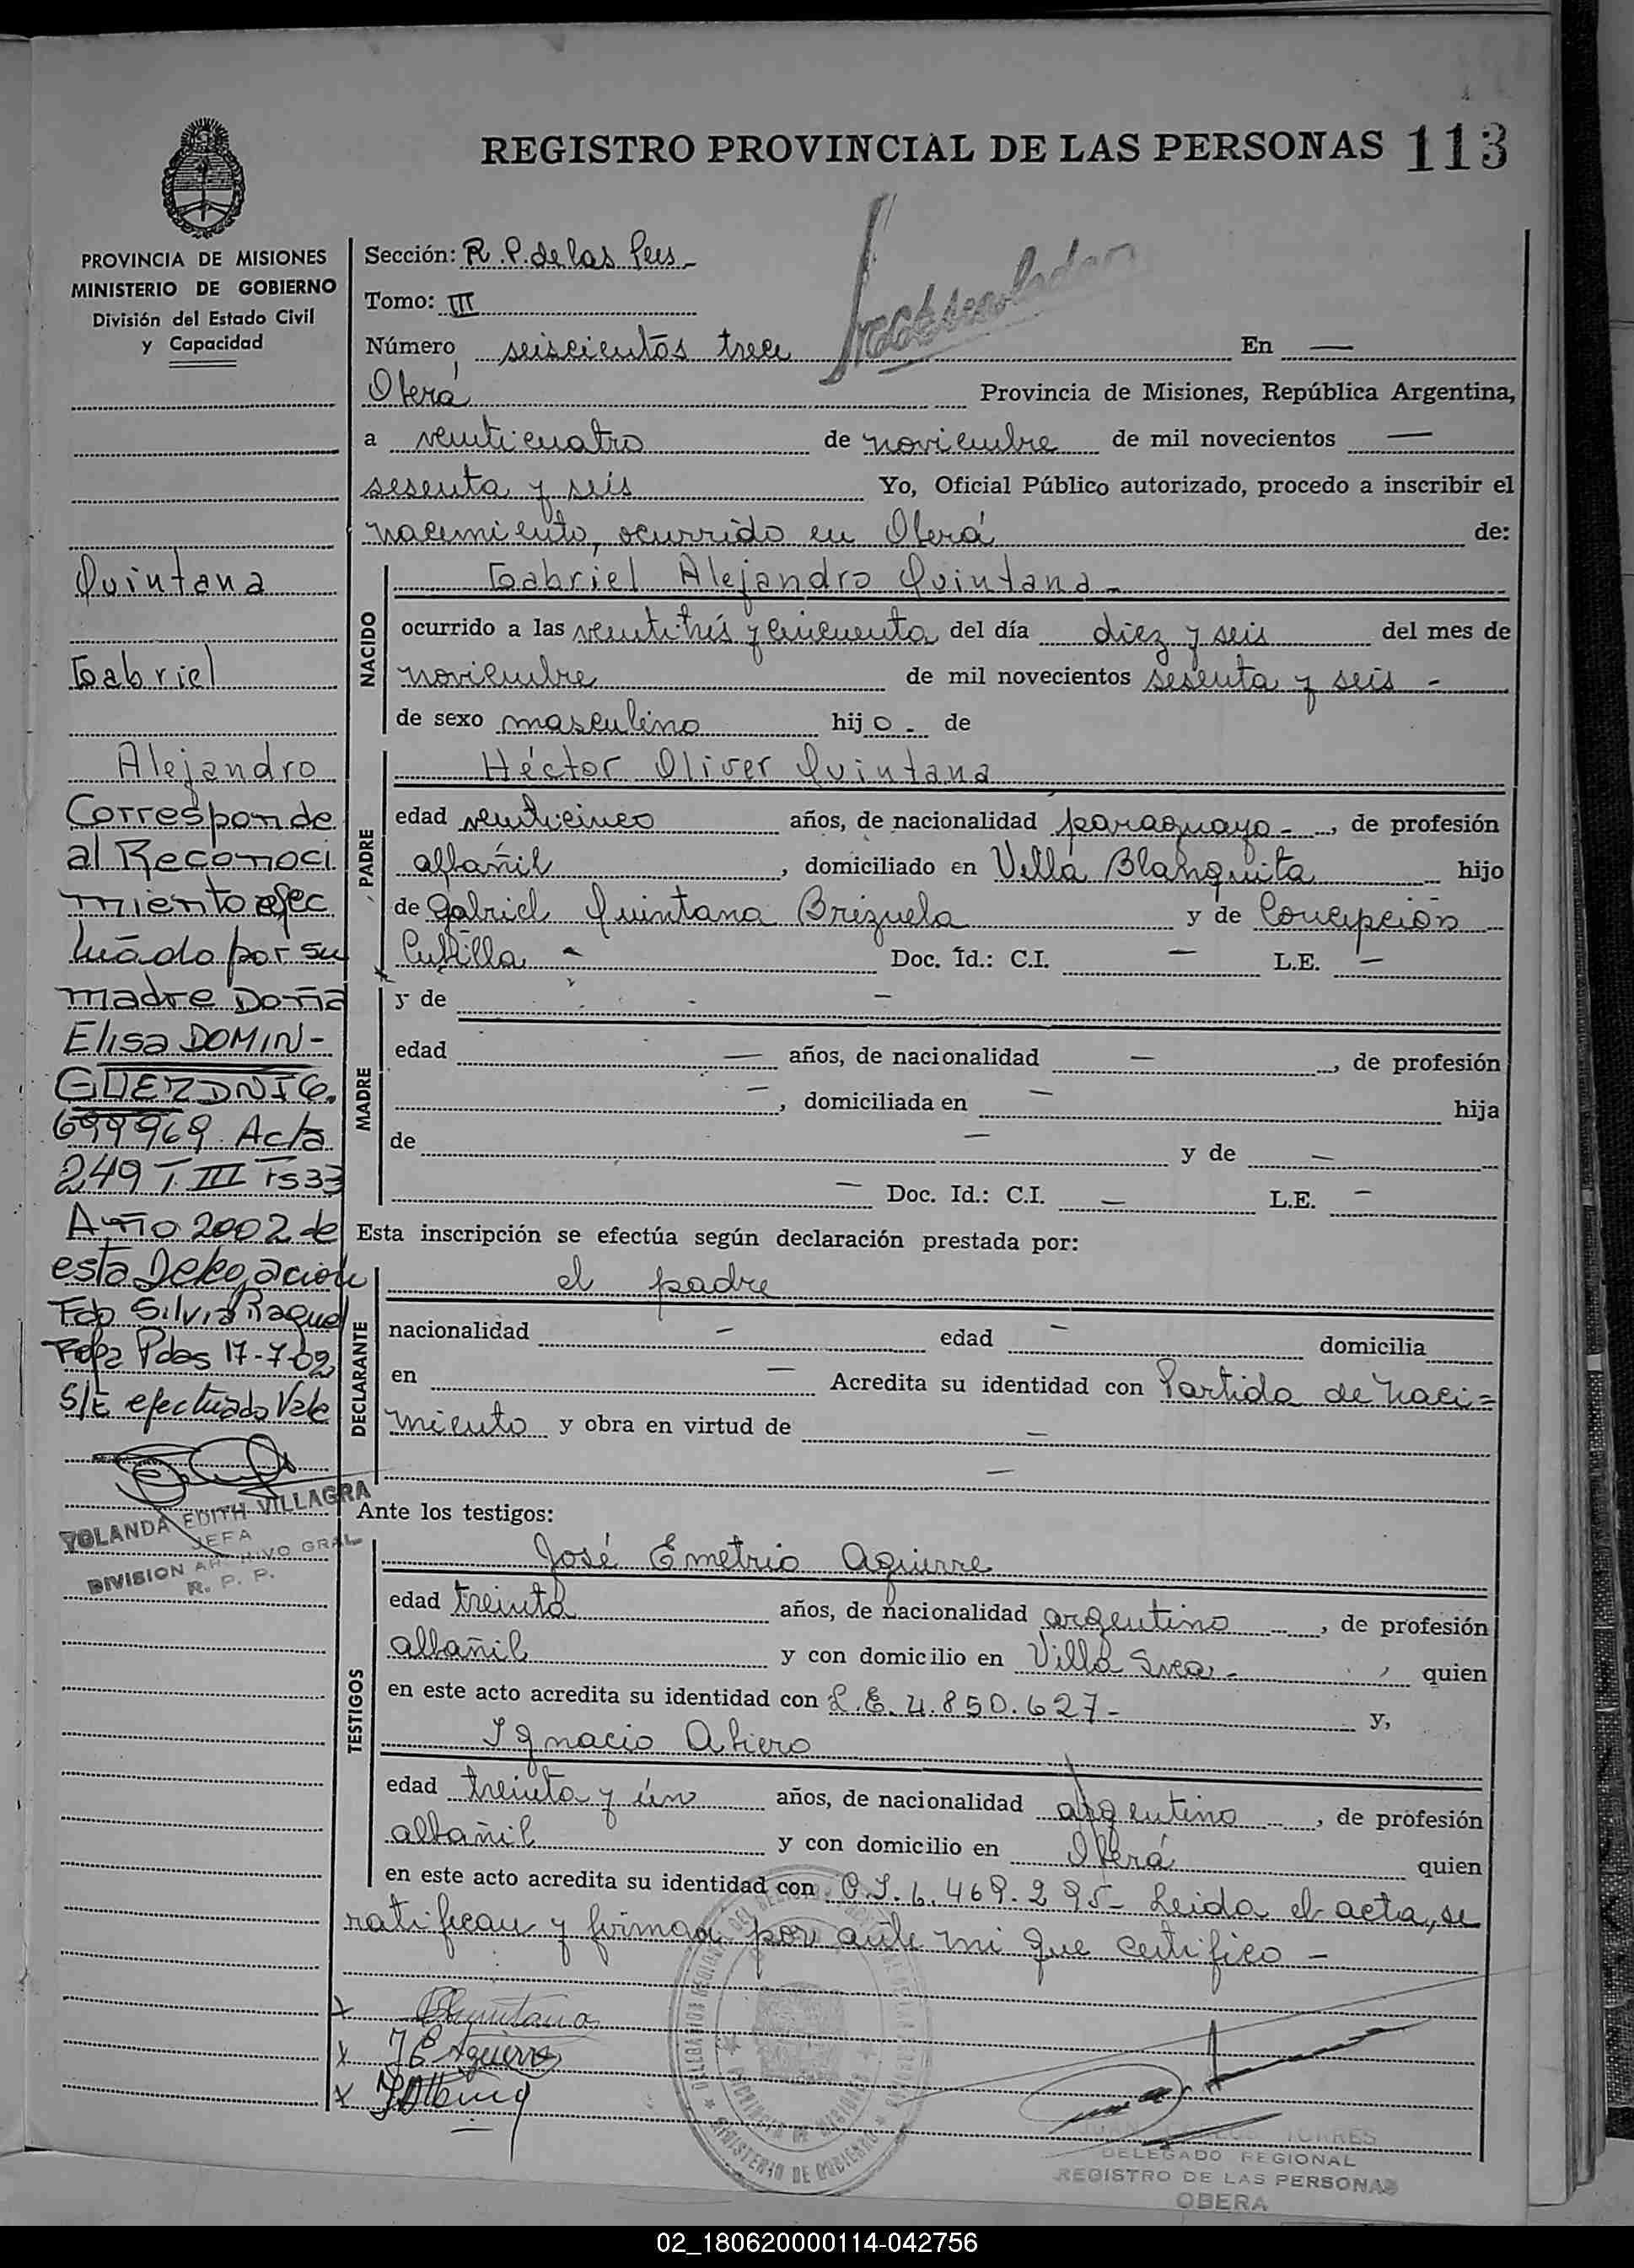 REGISTRO PROVINCIAL DE LAS PERSONAS 113
PROVINCIA DE MISIONES
MINISTERIO DE GOBIERNO
División del Estado Civil
y Capacidad
Quintana
Gabriel
Alejandro
Corresponde
al Reconoci
miento efec
tuado por su
madre Doña
Elisa DOMIN-
GUEZ DNI 6.
699969 Acta
249 T III Fs 33
Año 2002 de
esta Delegación
Fdo Silvia Raquel
Pdas 17-7-02
S/E efectuado Vale
YOLANDA EDITH VILLAGRA
JEFA
DIVISION ARCHIVO GRAL
R. P. P.
Sección: R. P. de las Pers -
Tomo: III
Número seiscientos trece En —
Oberá Provincia de Misiones, República Argentina,
a veinticuatro de noviembre de mil novecientos —
sesenta y seis Yo, Oficial Público autorizado, procedo a inscribir el
nacimiento, ocurrido en Oberá de:
NACIDO
Gabriel Alejandro Quintana -
ocurrido a las veintitrés y cincuenta del día diez y seis del mes de
noviembre de mil novecientos sesenta y seis -
de sexo masculino hijo - de
PADRE
Héctor Oliver Quintana
edad veinticinco años, de nacionalidad paraguayo -, de profesión
albañil, domiciliado en Villa Blanquita hijo
de Gabriel Quintana Brizuela y de Concepción
Cubilla - Doc. Id.: C.I. — L.E. —
MADRE
y de —
edad — años, de nacionalidad —, de profesión
—, domiciliada en — hija
de — y de —
— Doc. Id.: C.I. — L.E. —
Esta inscripción se efectúa según declaración prestada por:
DECLARANTE
el padre
nacionalidad — edad — domicilia
en — Acredita su identidad con Partida de naci=
miento y obra en virtud de —
—
Ante los testigos:
TESTIGOS
José Emetrio Aguirre
edad treinta años, de nacionalidad argentino, de profesión
albañil y con domicilio en Villa Svea - quien
en este acto acredita su identidad con L.E. 4.850.627- y,
Ignacio
edad treinta y ún años, de nacionalidad argentino, de profesión
albañil y con domicilio en Oberá quien
en este acto acredita su identidad con C.I. 6.469.295- Leida el acta, se
ratifican y firman por ante mi que certifico -
x Quintana
x J E Aguirre
x
MINISTERIO DE GOBIERNO
PROVINCIA DE MISIONES
TORRES
DELEGADO REGIONAL
REGISTRO DE LAS PERSONAS
OBERA
02_180620000114-042756